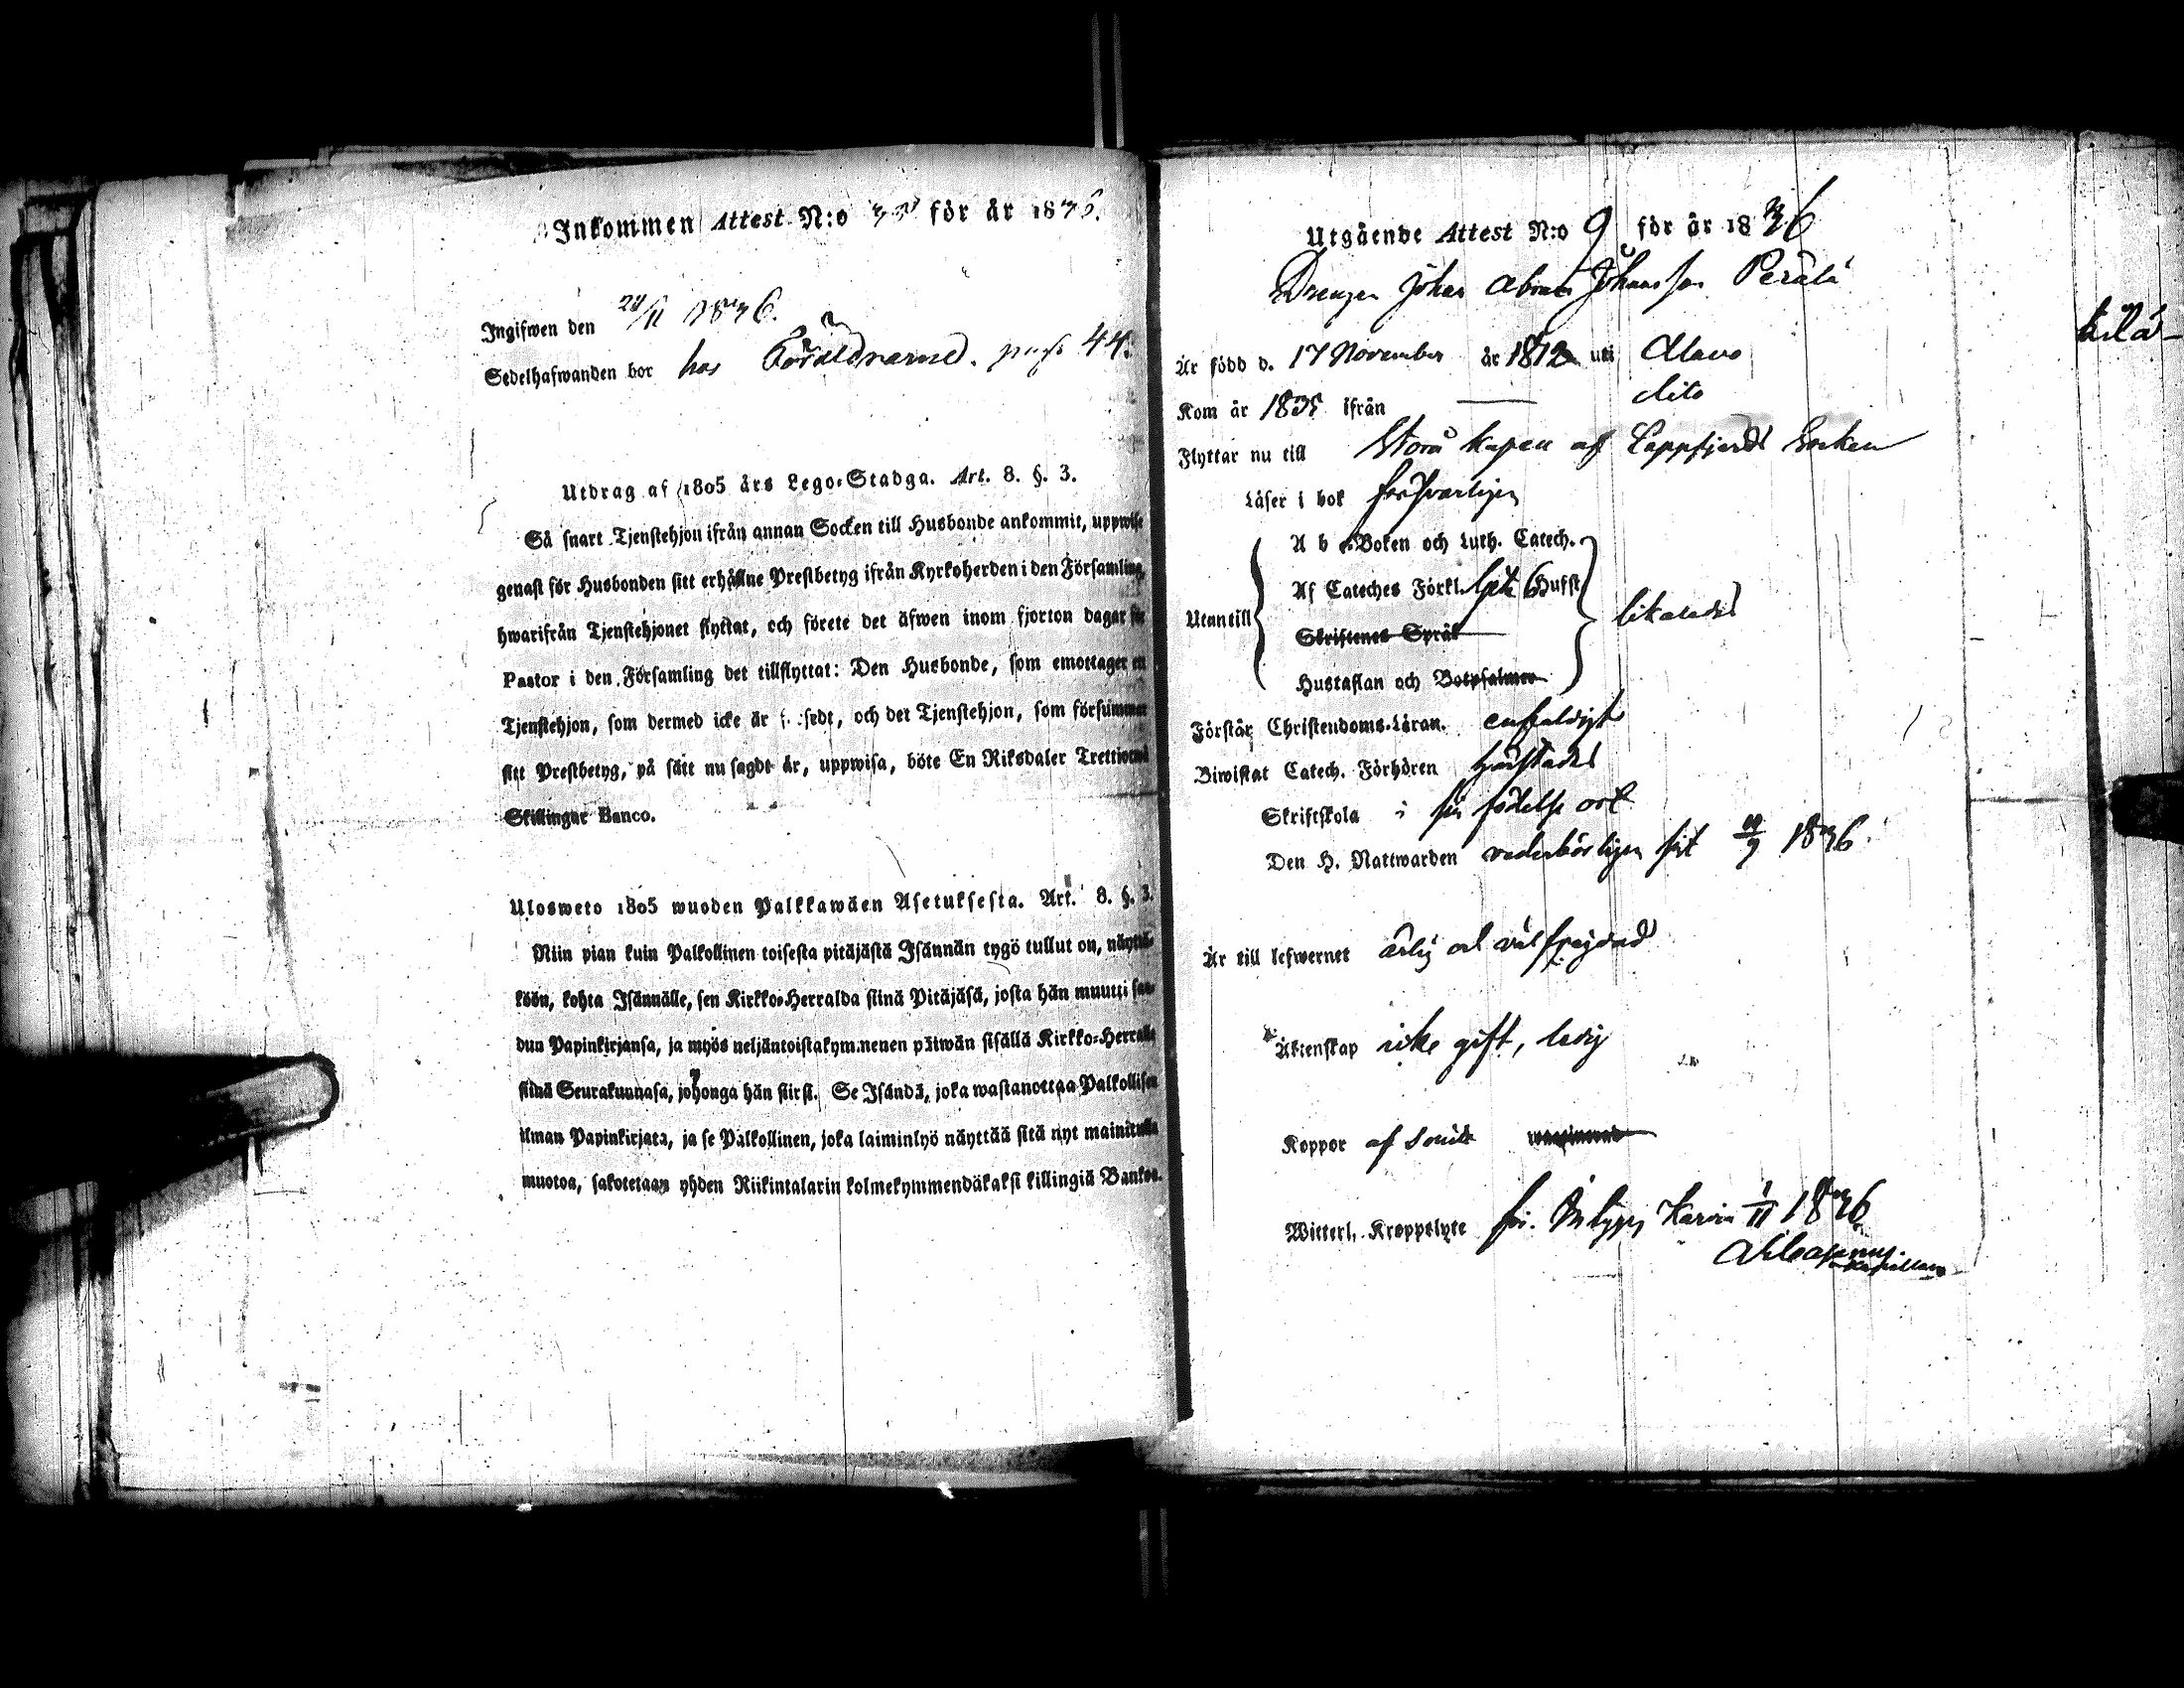 Inkommen Attest N:o för år 1836.
Ingifwen den 24/11 1836.
Sedelhafwanden bor hos Föräldrarne. pag. 44.
Utdrag af 1805 års Lego-Stadga. Art. 8. §. 3.
Så snart Tjenstehjon ifrån annan Socken till Husbonde ankommit, uppwise
genast för Husbonden sitt erhållne Prestbetyg ifrån Kyrkoherden i den Församling
hwarifrån Tjenstehjonet flyttat, och förete det äfwen inom fjorton dagar för
Pastor i den Församling det tillflyttat: Den Husbonde, som emottager ett
Tjenstehjon, som dermed icke är försedt, och det Tjenstehjon, som försummar
sitt Prestbetyg, på sätt nu sagdt är, uppwisa, böte En Riksdaler Trettiotwå
Skillingar Banco.
Ulosweto 1805 wuoden Palkkawäen Asetuksesta. Art. 8. §. 3.
Niin pian kuin Palkollinen toisesta pitäjästä Isännän tygö tullut on, näyttä-
köön, kohta Isännälle, sen Kirkko-Herralda siinä Pitäjäsä, josta hän muutti saa-
dun Papinkirjansa, ja myös neljäntoistakymmenen päiwän sisällä Kirkko-Herralle
siinä Seurakunnasa, johonga hän siirsi. Se Isändä, joka wastanottaa Palkollisen
ilman Papinkirjata, ja se Palkollinen, joka laiminlyö näyttää sitä nyt mainitulla
muotoa, sakotetaan yhden Riikintalarin kolmekymmendäkaksi killingiä Bankoa.
Utgående Attest N:o 9 för år 1836
Drengen Johan Abram Johansson Perälä
Är född d. 17 November år 1812 uti Alavo
Kom år 1835 ifrån dito
Flyttar nu till Storå kapell af Lappfjerds Socken
Läser i bok försvarligen
A b c-Boken och Luth. Catech.
Af Cateches Förkl. Hufst
Utantill likaledes
Skriftenes Språk
Hustaflan och Botpsalmer
Förstår Christendoms-Läran. enfaldigt
Biwistat Catech. Förhören
Skriftskola i sin födelse ort
Den H. Nattwarden vederbörligen sist 1836
Är till lefwernet ärlig och väl frejdad
Äktenskap icke gift, ledig
Koppor af smitta waccinerad
Witterl. Kroppslyte fri. Karvia 1/11 1836
Kapellan
kilä-